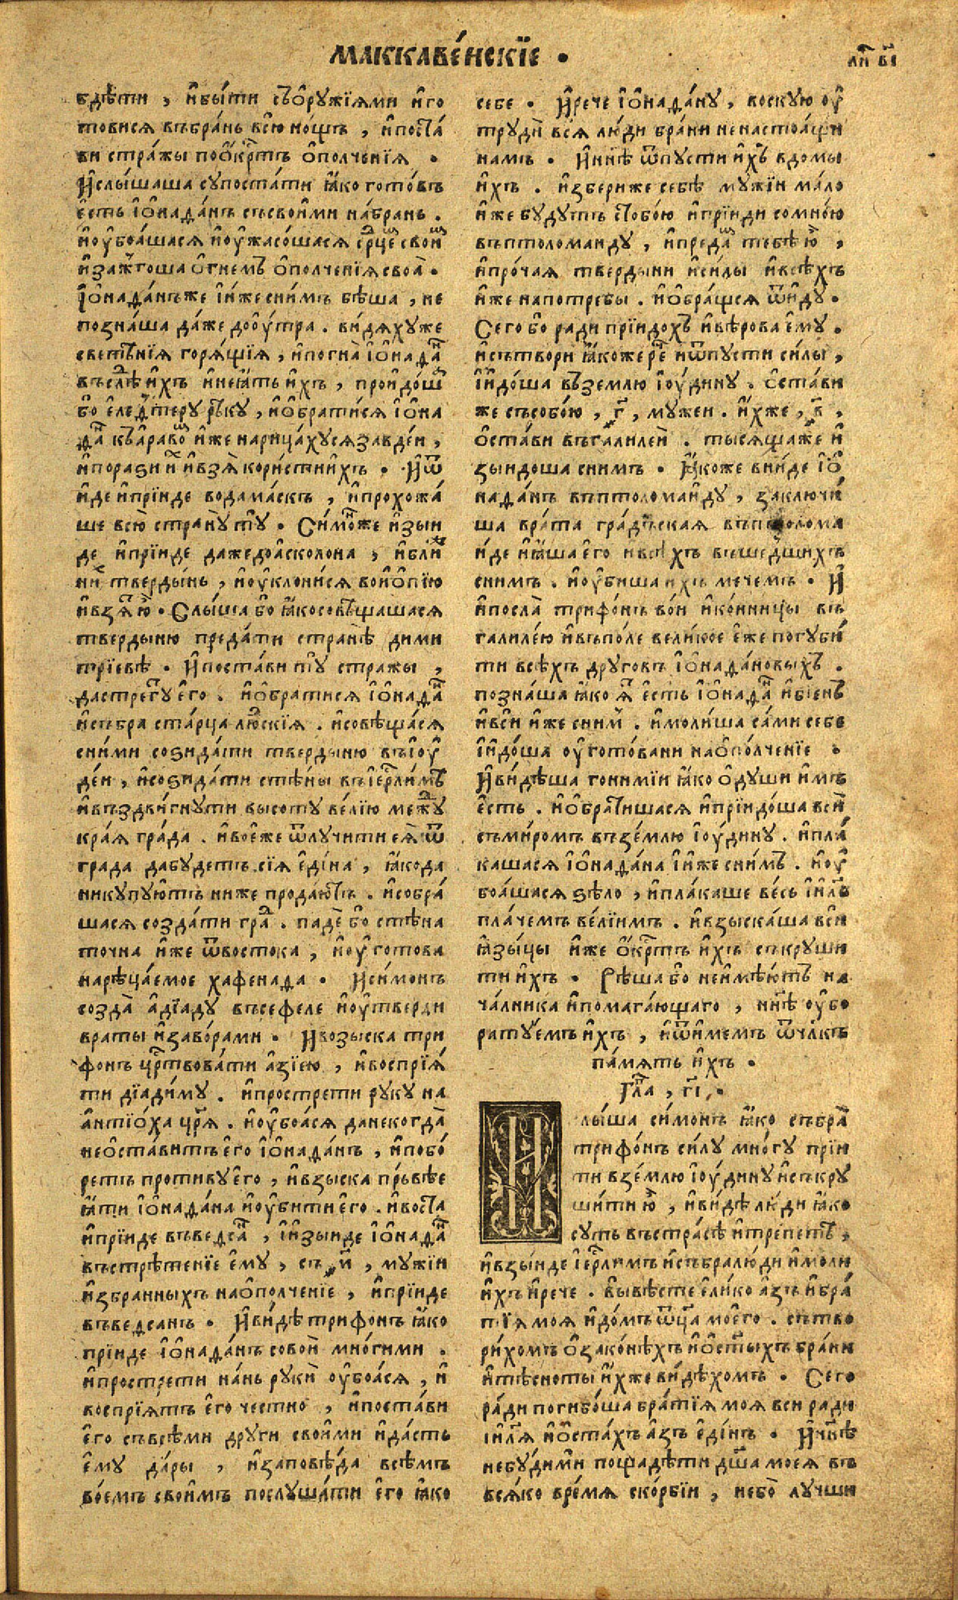 МАККАВЕ́ЙСКЇЕ .
бдѣ́ти , и҆бы́ти съѻ҆рꙋ́жїѧми и҆го
то́висѧ въбра́нь всю̀ но́щъ , и҆поста́
ви стра́жы поо҆́крⷭ҇тъ ѻ҆полче́нїѧ .
И҆слы́шаша сꙋпоста́ти ꙗ҆́ко гото́въ
е҆́сть і҆ѡнаѳа́нъ съсвои́ми на́брань .
и҆оу҆боѧ́шасѧ и҆оу҆жасо́шасѧ срⷣцеⷨ свои́ⷨ
и҆зажго́ша ѻ҆гнемъ ѻ҆полче́нїѧ своѧ̀ .
І҆ѡнаѳа́нъже и҆и҆́же сни́мъ бѣ́ша , не
позна́ша да́же доо҆у́тра . ви́дѧхꙋже
светы́нїѧ горѧ́щїѧ , и҆погна̀ і҆ѡнаѳа́ⷩ
въслѣ́ⷣ и҆́хъ и҆неꙗ҆́тъ и҆́хъ , проидо́шаⷨ
бо е҆леѵⷴтерꙋ рѣ́кꙋ , и҆ѻ҆брати́сѧ і҆ѡна
ѳа́ⷩ къа҆ра́воⷨ и҆́же нарица́хꙋсѧзавде́и ,
и҆порази и҆̀ и҆взѧ̀ кори́стиихъ . И҆ѿ
и҆де и҆прїи́де вода́маскъ , и҆прохожа́
ше всю̀ странꙋ̀ тꙋ̀ . Си́монже и҆зы́и
де и҆прїи́де дажедоа҆сколо́на , и҆бли́
ниⷯ тверды́нь , и҆оу҆клони́сѧ воио҆пі́ю
и҆взѧ́ⷮ ю҆̀ . Слы́ша бо ꙗ҆́косовѣща́шасѧ
тверды́ню преда́ти странѣ̀ дими
трїевѣ̀ . И҆поста́ви тꙋ̀ стра́жы ,
дастрегꙋ́ⷮ е҆го̀ . и҆ѻ҆брати́сѧ і҆ѡнаѳа́ⷩ
и҆събра ста́рца лю́ⷣскїѧ . и҆совѣща́сѧ
сни́ми соѕида́ти тверды́ню въі҆оу҆
де́и , и҆соѕида́ти стѣ́ны въі҆ерⷭ҇ли́мъ
и҆въздви́гнꙋти высотꙋ̀ ве́лїю ме́жⷣꙋ
кра́ѧ гра́да . и҆вое҆́же ѿлꙋчи́ти е҆ѧ̀ ѿ
гра́да дабꙋ́детъ сїѧ̀ е҆ди́на , ꙗ҆́кода
никꙋпꙋ́ютъ ниже продаю́тъ . и҆собра́
шасѧ созда́ти граⷣ . паде́ бо стѣна̀
то́чна и҆́же ѿвосто́ка , и҆оу҆гото́ва
нарѣца́емое хафена́да . И҆си́монъ
созда̀ а҆дїа́дꙋ въсефе́ле и҆оу҆тверди
враты̀ и҆забо́рами . И҆возы́ска три
фонъ црⷭ҇твова́ти а҆зі́ею , и҆воспрїѧ́
ти дїади́мꙋ . и҆простре́ти рꙋкꙋ на
а҆нтїо́ха црѧ̀ . и҆оу҆боѧ́сѧ данекогда̀
неѻ҆ста́витъ е҆го̀ і҆ѡнаѳа́нъ , и҆побо́
ретъ проти́вꙋ е҆го̀ , и҆взы́ска пръвѣе
ꙗ҆́ти і҆ѡнаѳа́на и҆оу҆би́ти е҆го̀ . и҆воста̀
и҆прїи́де въведса́ⷩ , и҆и҆зы́иде і҆ѡнаѳа́ⷩ
въстрѣ́тенїе е҆мꙋ̀ , съ м҃ , мꙋ́жїи
и҆збра́нныхъ наѻ҆полче́нїе , и҆прїи́де
въведса́нъ . И҆ви́дѣ три́фонъ ꙗ҆́ко
прїи́де і҆ѡнаѳа́нъ сово́и мно́гими .
и҆простре́ти на́нь рꙋкѝ оу҆боѧ́сѧ , и҆
воспрїѧ́тъ е҆го̀ че́стно , и҆поста́ви
е҆го̀ съвсѣ́ми дрꙋ́ги свои́ми и҆да́сть
е҆мꙋ̀ да́ры , и҆заповѣ́да всѣ́мъ
во́емъ свои́мъ послꙋ́шати е҆го̀ ꙗ҆́ко
себе . И҆рече і҆ѡнаѳа́нꙋ , воскꙋ́ю оу҆
трꙋдѝ всѧ̀ лю́ди бра́ни ненастоѧ́щи
намъ . И҆ннѣ̀ ѿпꙋсти и҆́хъ вдомы̀
и҆́хъ . и҆збериже себѣ̀ мꙋ́жїи ма́ло
и҆́же бꙋ́дꙋтъ стобо́ю и҆прїиди сомно́ю
въптолома́идꙋ , и҆преда́ⷨ тебѣ̀ ю҆̀ ,
и҆про́чаѧ тверды́ни и҆си́лы и҆всѣ́хъ
и҆́же напотре́бы . и҆ѻ҆бра́щсѧ ѿи҆дꙋ̀ .
Сего̀ бо ра́ди прїидо́хъ и҆вѣ́рова е҆мꙋ̀ .
и҆сътвори ꙗ҆́коже реⷱ҇ и҆ѿпꙋсти си́лы ,
и҆и҆до́ша въземлю і҆оу́динꙋ . ѻ҆ста́ви
же съсобо́ю , г҃ , мꙋ́жеи . и҆́хже , в҃ ,
ѻ҆ста́ви въгалиле́и . ты́сѧщаже и҆
зыидо́ша сни́мъ . Ꙗ҆́коже вни́де і҆ѡ
наѳа́нъ вптолома́идꙋ , заключи́
ша врата̀ гра́дьскаѧ въптолома
и҆де и҆ꙗ҆́ша е҆го̀ и҆всѣ́хъ въше́дшихъ
сни́мъ . и҆оу҆би́ша и҆хъ мече́мъ . И҆
и҆посла̀ три́фонъ вои и҆ко́нницы въ
галиле́ю и҆въпо́ле вели́кое е҆́же погꙋби́
ти всѣ́хъ дрꙋ́говъ і҆ѡнаѳа́новыхъ .
позна́ша ꙗ҆́ко ꙗ҆́ⷮ е҆́сть і҆ѡнаѳа́ⷩ и҆бїе́нъ
и҆всѝ и҆́же сни́ⷨ . и҆моли́ша са́ми себе
и҆и҆до́ша оу҆гото́вани наѻ҆полче́нїе .
И҆ви́дѣша гони́мїи ꙗ҆́ко ѻ҆дꙋшѝ и҆́мъ
е҆́сть . и҆ѻ҆брати́шасѧ и҆прїидо́ша всѝ
съми́ромъ въземлю і҆оу́динꙋ . и҆пла́
кашасѧ і҆ѡнаѳа́на и҆и҆́же сни́мъ . и҆оу҆
боѧ́шасѧ ѕѣло̀ , и҆пла́каше весь і҆и҃ль
пла́чемъ ве́лїимъ . и҆взыска́ша всѝ
ꙗ҆зы́цы и҆́же ѻ҆́крⷭ҇тъ и҆́хъ съкрꙋши́
ти и҆́хъ . Рѣ́ша бо неи҆мѣ́ютъ на
ча́лника и҆помага́ющаго , нн҃ѣ оу҆бо
ратꙋ́емъ и҆́хъ , и҆ѿи҆́мемъ ѿчл҃къ
па́мѧть и҆́хъ .
Гла̀ , г҃і .
И лы́ша си́монъ ꙗ҆́ко събра̀
три́фонъ си́лꙋ мно́гꙋ прїи
ти взе́млю і҆оу́динꙋ и҆съкрꙋ
ши́ти ю҆̀ , и҆ви́дѣ лю́ди ꙗ҆́ко
сꙋ́ть въстра́сѣ и҆тре́петѣ ,
и҆взы́иде і҆ерⷭ҇ли́мъ и҆събралю́ди и҆моли
и҆́хъ и҆рече . вывѣ́сте е҆ли́ко а҆́зъ и҆бра́
тїѧ моѧ̀ и҆до́мъ ѿц҃а моего̀ . сътво
ри́хомъ ѻ҆зако́нѣхъ и҆ѻ҆ст҃ы́хъ бра́ни
и҆тѣсноты̀ и҆́хже ви́дѣхомъ . Сего̀
ра́ди погибо́ша бра́тїѧ моѧ̀ всѝ ра́ди
і҆и҃лѧ и҆ѻ҆ста́хъ а҆́зъ е҆ди́нъ . И҆нн҃ѣ
небꙋ́димѝ пощадѣ́ти дш҃а моеѧ̀ въ
всѧ́ко вре́мѧ ско́рбїи , небо̀ лꙋ́чши